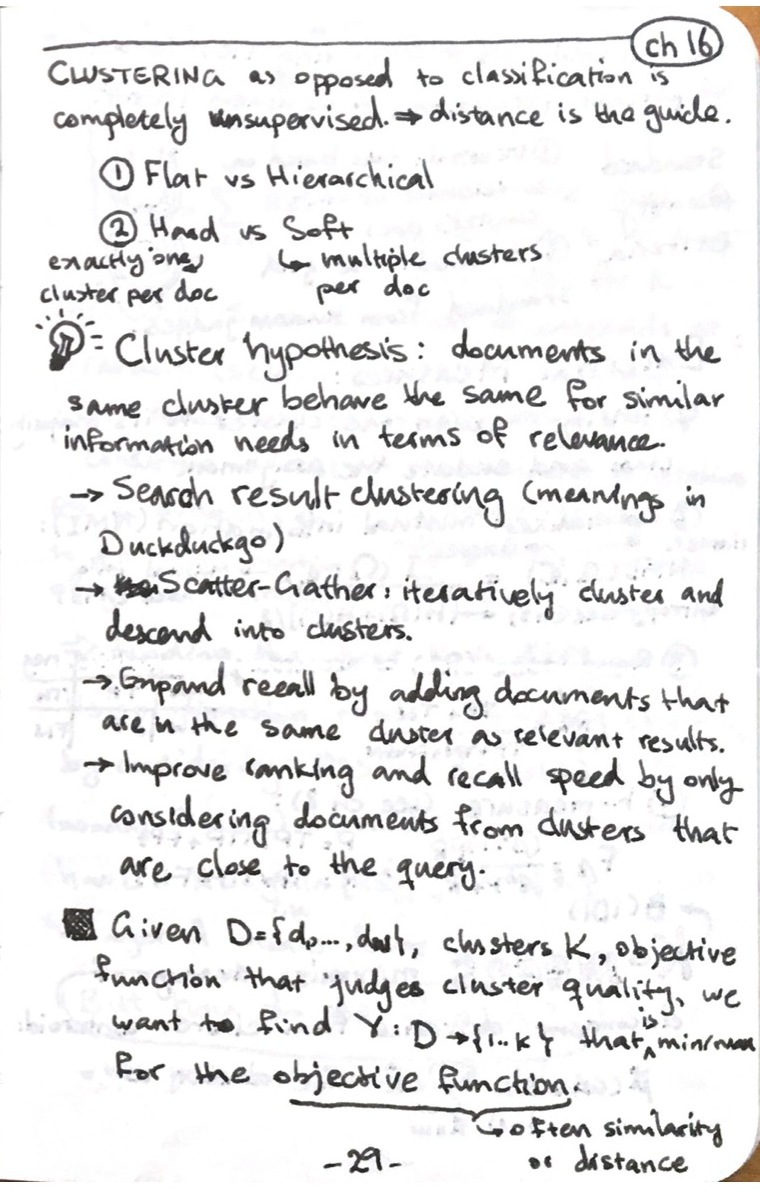 ch 16
CLUSTERING as opposed to classification is
completely unsupervised. ⇒ distance is the guide.
① Flat vs Hierarchical
② Hard vs Soft
exactly one
cluster per doc
↳ multiple clusters
per doc
Cluster hypothesis: documents in the
same cluster behave the same for similar
information needs in terms of relevance.
→ Search result clustering (meanings in
Duckduckgo)
→ Scatter-Gather: iteratively cluster and
descend into clusters.
→ Expand recall by adding documents that
are in the same cluster as relevant results.
→ Improve ranking and recall speed by only
considering documents from clusters that
are close to the query.
Given D={d₁,...,d|D|}, clusters K, objective
function that judges cluster quality, we
want to find γ: D→{1..k} that is min/max
for the objective function.
↳ often similarity
or distance
-29-